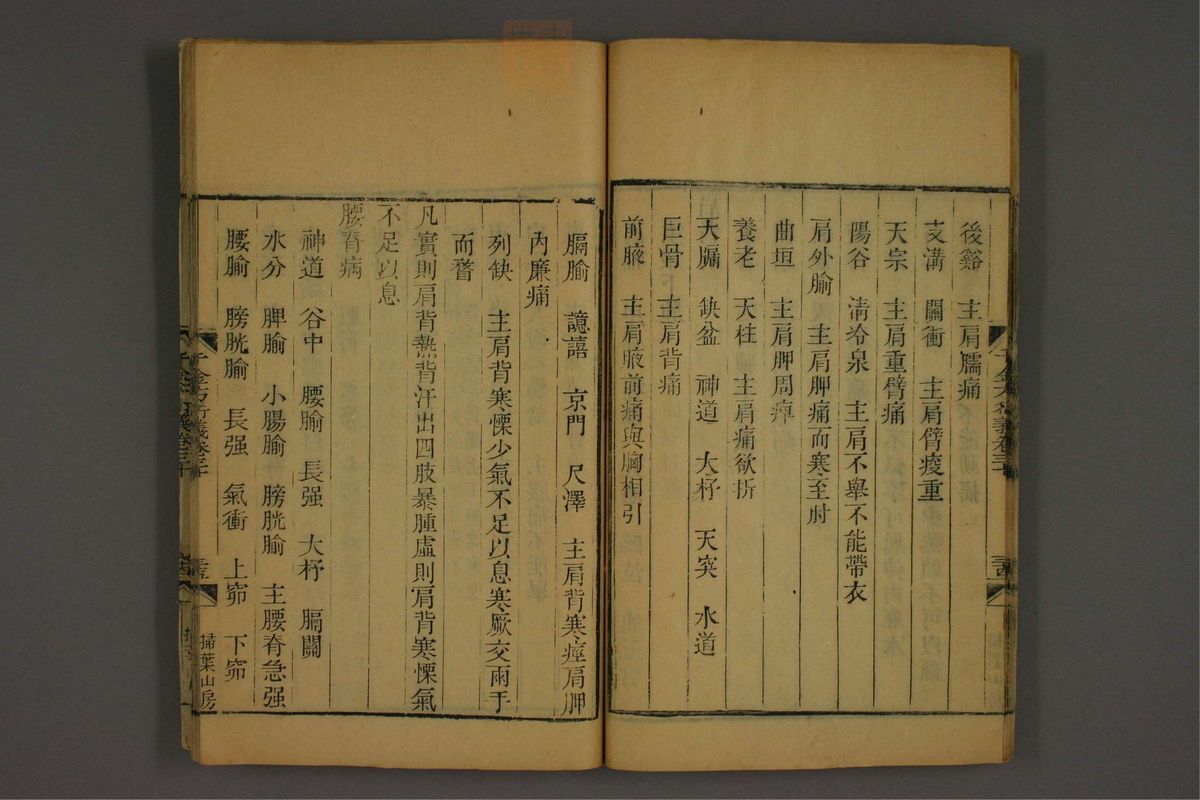 後谿　主肩臑痛
支溝　關衝　主肩臂痠重
天宗　主肩重臂痛
陽谷　清冷泉　主肩不舉不能帶衣
肩外腧　主肩胛痛而寒至肘
曲垣　主肩胛周痺
養老　天柱　主肩痛欲折
天牖　缺盆　神道　大杼　天突　水道
巨骨　主肩背痛
前腋　主肩腋前痛與胸相引
膈腧　譩譆　京門　尺澤　主肩背寒痙肩胛
內廉痛
列缺　主肩背寒慄少氣不足以息寒厥交兩手
而瞀
凡實則肩背熱背汗出四肢暴腫虛則肩背寒慄氣
不足以息
腰脊病
神道　谷中　腰腧　長强　大杼　膈關
水分　脾腧　小腸腧　膀胱腧　主腰脊急强
腰腧　膀胱腧　長强　氣衝　上窌　下窌
千金方衍義卷三十
掃葉山房